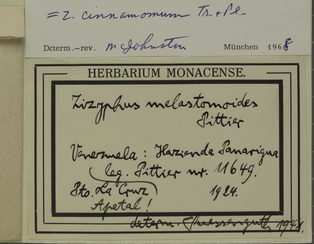 = Z. cinnamomum Tr. + Pl.
Determ.-rev. M Johnston München 1968
HERBARIUM MONACENSE.
Zizyphus melastomoides
Pittier
Venezuela: Hazienda Panarigua
leg. Pittier nr. 11649.
Pto. La Cruz) 1924.
Apetal!
determ. Suessenguth 1941